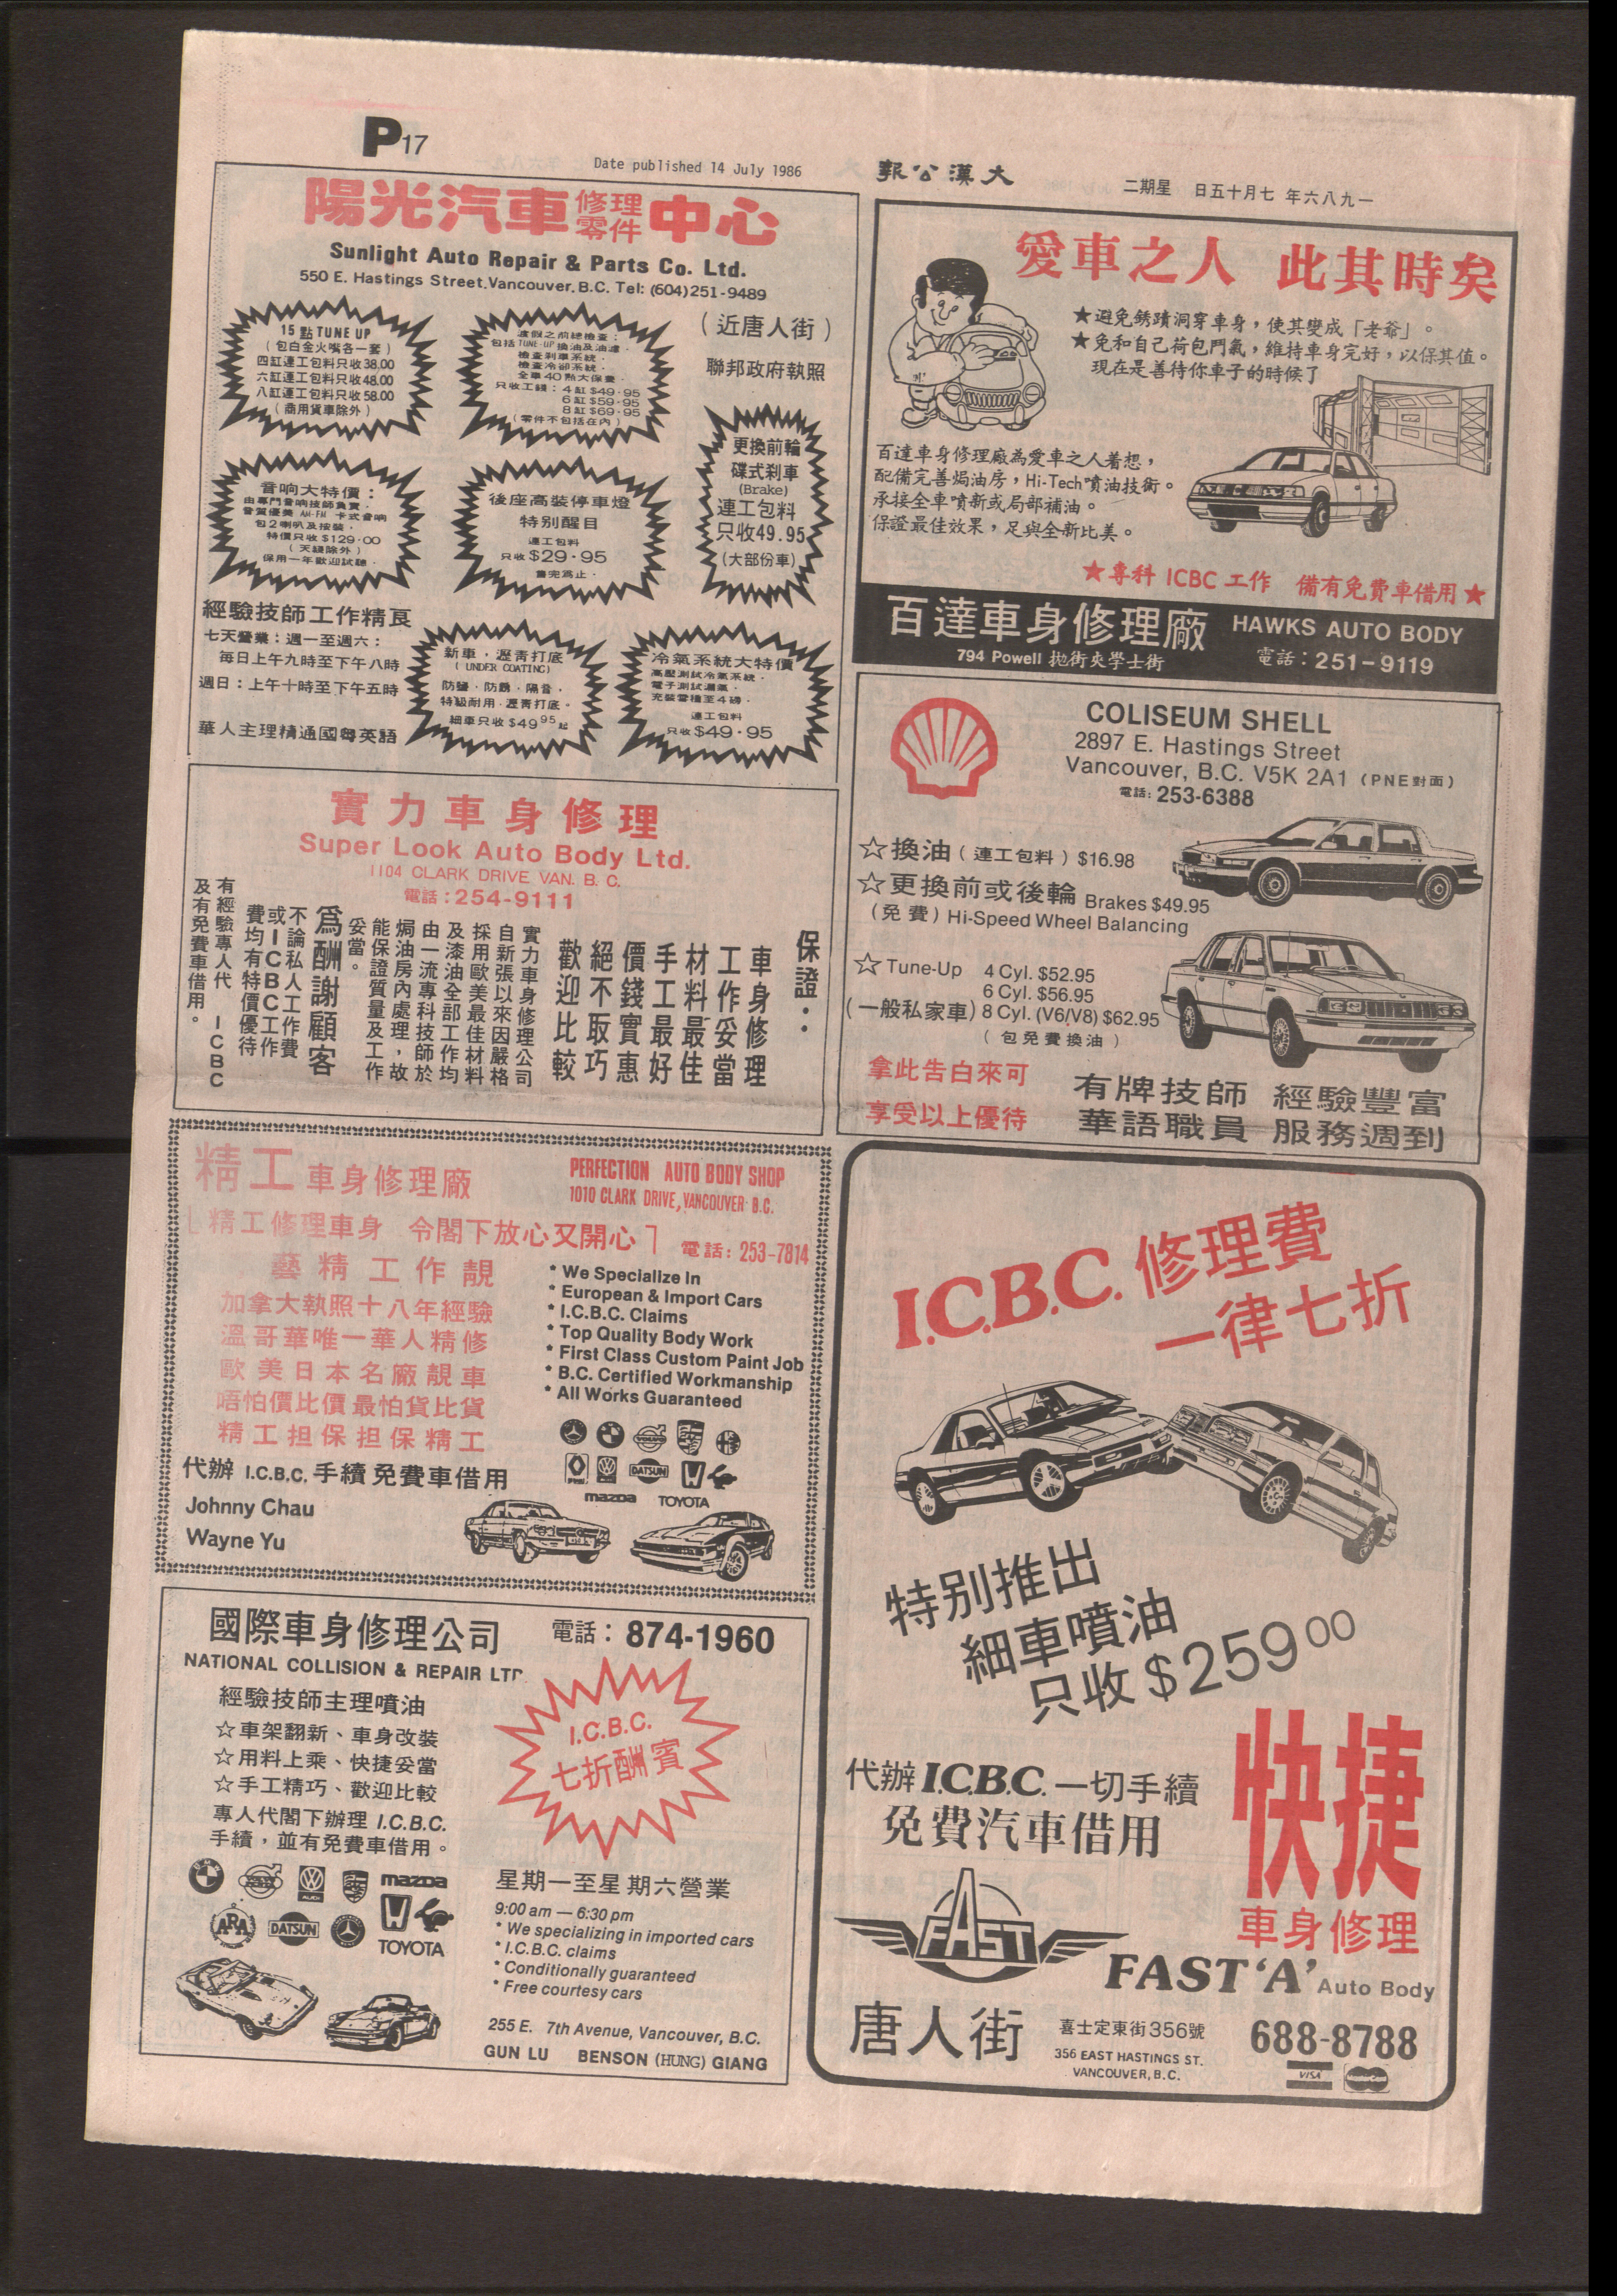 P17
Date published 14 July 1986
報公漢大
二期星 日五十月七 年六八九一
陽光汽車修理零件中心
Sunlight Auto Repair & Parts Co. Ltd.
550 E. Hastings Street, Vancouver, B.C. Tel: (604) 251-9489
15 點 TUNE UP
(包白金火嘴各一套)
四缸連工包料只收38.00
六缸連工包料只收48.00
八缸連工包料只收58.00
(商用貨車除外)
渡假之前總檢查:
包括 TUNE-UP 換油及油濾.
檢查刹車系統.
檢查冷卻系統.
全車40點大保養.
只收工錢:4缸$49.95
6缸$59.95
8缸$69.95
(零件不包括在內)
(近唐人街)
聯邦政府執照
更換前輪
碟式刹車
(Brake)
連工包料
只收49.95
(大部份車)
音响大特價:
由專門音响技師負責.
音質優美 AM-FM 卡式音响
包2喇叭及按裝.
特價只收$129.00
(天綫除外)
保用一年歡迎試聽.
後座高裝停車燈
特別醒目
連工包料
只收$29.95
售完為止.
經驗技師工作精良
七天營業:週一至週六:
每日上午九時至下午八時
週日:上午十時至下午五時
華人主理精通國粵英語
新車,瀝青打底
(UNDER COATING)
防鹽.防銹.隔音.
特級耐用.瀝青打底。
細車只收$49.95起
冷氣系統大特價
高壓測試冷氣系統.
電子測試漏氣.
充裝雪種至4磅.
連工包料
只收$49.95
愛車之人 此其時矣
★避免銹蹟洞穿車身,使其變成「老爺」。
★免和自己荷包鬥氣,維持車身完好,以保其值。
現在是善待你車子的時候了
百達車身修理廠為愛車之人着想,
配備完善焗油房,Hi-Tech噴油技術。
承接全車噴新或局部補油。
保證最佳效果,足與全新比美。
★專科 ICBC 工作 備有免費車借用★
百達車身修理廠 HAWKS AUTO BODY
794 Powell 抛街夾學士街 電話:251-9119
COLISEUM SHELL
2897 E. Hastings Street
Vancouver, B.C. V5K 2A1 (PNE對面)
電話: 253-6388
☆換油(連工包料)$16.98
☆更換前或後輪 Brakes $49.95
(免費) Hi-Speed Wheel Balancing
☆ Tune-Up 4 Cyl. $52.95
6 Cyl. $56.95
(一般私家車) 8 Cyl. (V6/V8) $62.95
(包免費換油)
拿此告白來可
享受以上優待
有牌技師 經驗豐富
華語職員 服務週到
實力車身修理
Super Look Auto Body Ltd.
1104 CLARK DRIVE VAN. B. C.
電話:254-9111
保證:
車身修理
工作妥當
材料最佳
手工最好
價錢實惠
絕不取巧
歡迎比較
實力車身修理公司
自新張以來因嚴格
採用歐美最佳材料
及漆油全部工作均
由一流專科技師於
焗油房內處理,故
能保證質量及工作
妥當。
為酬謝顧客
不論私人工作費
或ICBC工作
費均有特價優待
有經驗專人代 ICBC
及有免費車借用。
精工車身修理廠
PERFECTION AUTO BODY SHOP
1010 CLARK DRIVE, VANCOUVER B.C.
「精工修理車身 令閣下放心又開心」
電話: 253-7814
藝精工作靚
加拿大執照十八年經驗
溫哥華唯一華人精修
歐美日本名廠靚車
唔怕價比價最怕貨比貨
精工担保担保精工
* We Specialize In
* European & Import Cars
* I.C.B.C. Claims
* Top Quality Body Work
* First Class Custom Paint Job
* B.C. Certified Workmanship
* All Works Guaranteed
VOLVO
DATSUN
mazda TOYOTA
代辦 I.C.B.C. 手續免費車借用
Johnny Chau
Wayne Yu
I.C.B.C. 修理費
一律七折
特別推出
細車噴油
只收$259.00
代辦 I.C.B.C. 一切手續
免費汽車借用
快捷
車身修理
FAST
FAST 'A' Auto Body
唐人街
喜士定東街356號
356 EAST HASTINGS ST.
VANCOUVER, B.C.
688-8788
VISA MasterCard
國際車身修理公司
電話: 874-1960
NATIONAL COLLISION & REPAIR LTD
經驗技師主理噴油
☆車架翻新、車身改裝
☆用料上乘、快捷妥當
☆手工精巧、歡迎比較
專人代閣下辦理 I.C.B.C.
手續,並有免費車借用。
I.C.B.C.
七折酬賓
BMW VOLVO AUDI mazda
ARA DATSUN TOYOTA
星期一至星期六營業
9:00 am — 6:30 pm
* We specializing in imported cars
* I.C.B.C. claims
* Conditionally guaranteed
* Free courtesy cars
255 E. 7th Avenue, Vancouver, B.C.
GUN LU BENSON (HUNG) GIANG